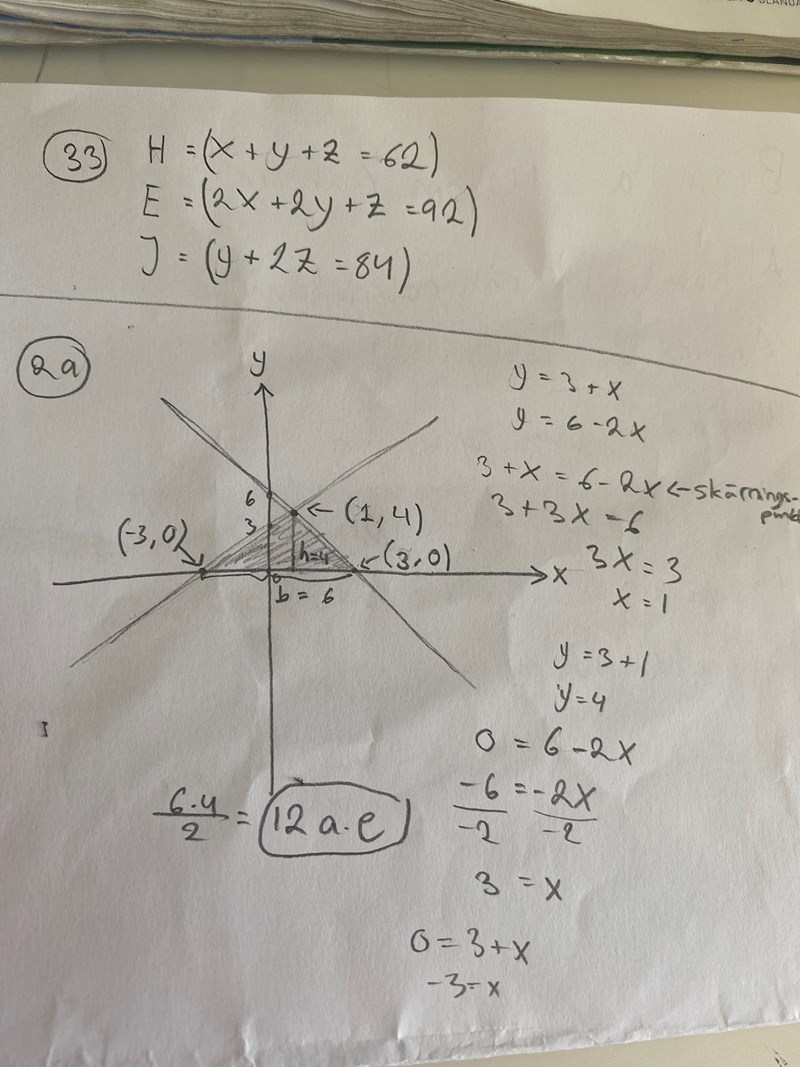 33 H = (x + y + z = 62)
E = (2x + 2y + z = 92)
J = (y + 2z = 84)
2a
y
y = 3 + x
y = 6 - 2x
3 + x = 6 - 2x ← skärnings-
punkt
3 + 3x = 6
3x = 3
x = 1
6
3
← (1, 4)
(-3, 0)
h=4
← (3, 0)
x
b = 6
y = 3 + 1
y = 4
0 = 6 - 2x
-6 = -2x
-2 -2
3 = x
0 = 3 + x
-3 = x
6·4
2
= 12 a.e